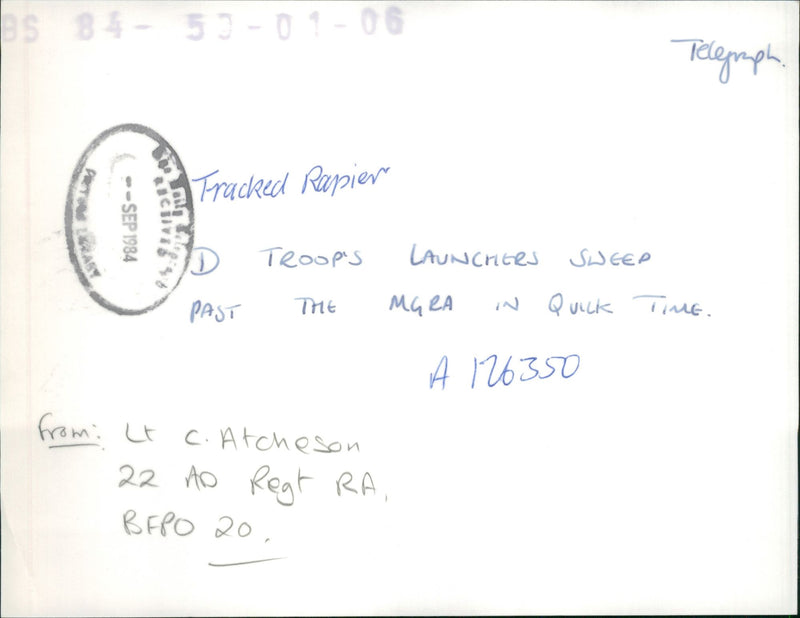 BS 84- 53-01-06
Telegraph.
PICTURE LIBRARY
- - SEP 1984
ARCHIVES
Tracked Rapier
D TROOP'S LAUNCHERS SWEEP
PAST THE MGRA IN QUICK TIME.
A 126350
From: Lt C. Atcheson
22 AD Regt RA,
BFPO 20.